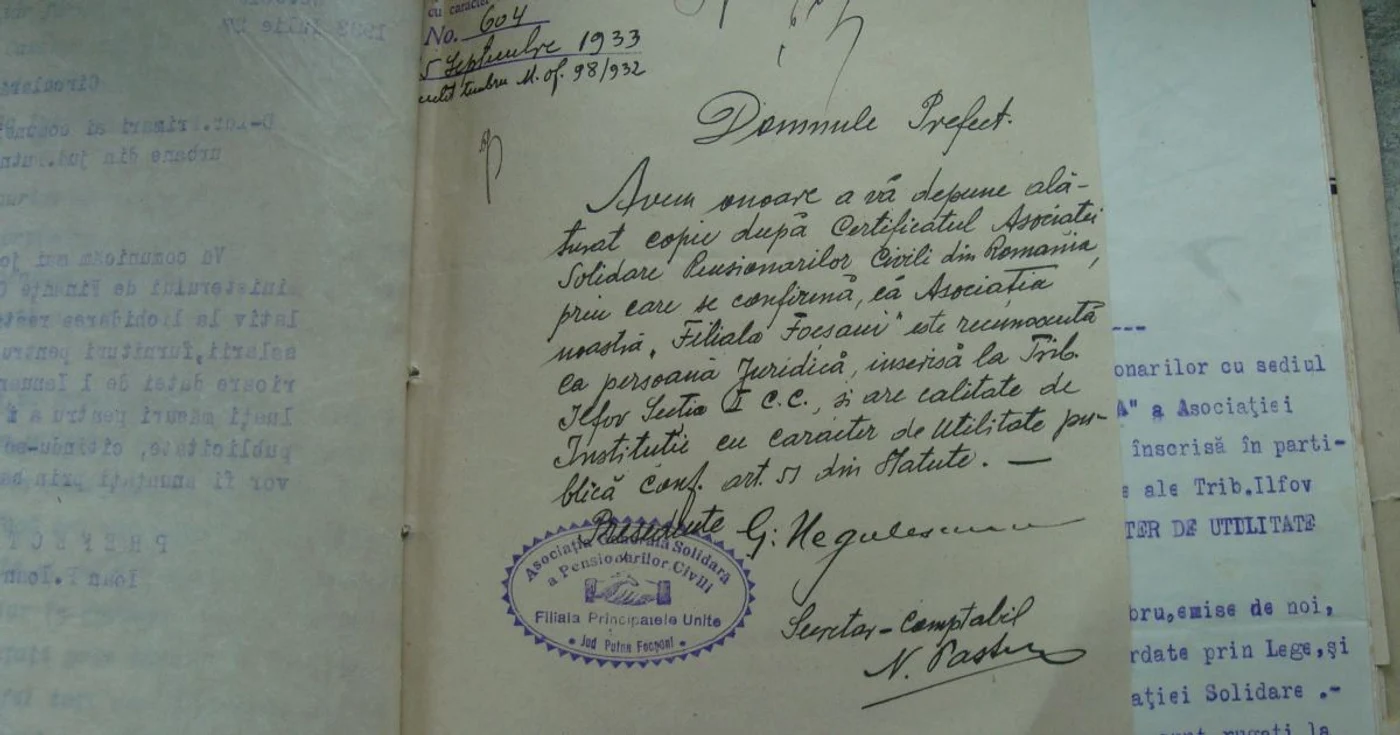 cu caracter
No. 604
5 Septembrie 1933
scutit timbru M. of. 98/932
Domnule Prefect.
Avem onoare a vă depune ală-
turat copie după Certificatul Asociatei
Solidare Pensionarilor Civili din Romania,
prin care se confirmă, că Asociatia
noastră „Filiala Focsani" este recunoscută
ca persoană Juridică, inscrisă la Trib.
Ilfov Sectia I C.C., si are calitate de
Institutie cu caracter de Utilitate pu-
blică conf. art. 51 din Statute. —
Presedinte G. Negulescu
Asociația Generală Solidară
a Pensionarilor Civili
Filiala Principatele Unite
Jud Putna Focșani
Secretar-Comptabil
onarilor cu sediul
A" a Asociaţiei
înscrisă în parti-
ale Trib.Ilfov
TER DE UTILITATE
bru,emise de noi,
rdate prin Lege,şi
aţiei Solidare .-
rugaţi la
1933 Iulie 27
Circulara
D-lor.Primari ai comune
urbane din jud.Putn
Va comunicăm mai jo
inisterului de Finanţe
lativ la lichidarea
salarii,furnituri pentru
rioare datei de 1 Ianuar
luaţi măsuri pentru a f
publicitate, citindu-se
vor fi anunţaţi prin
PREFECT
Ioan